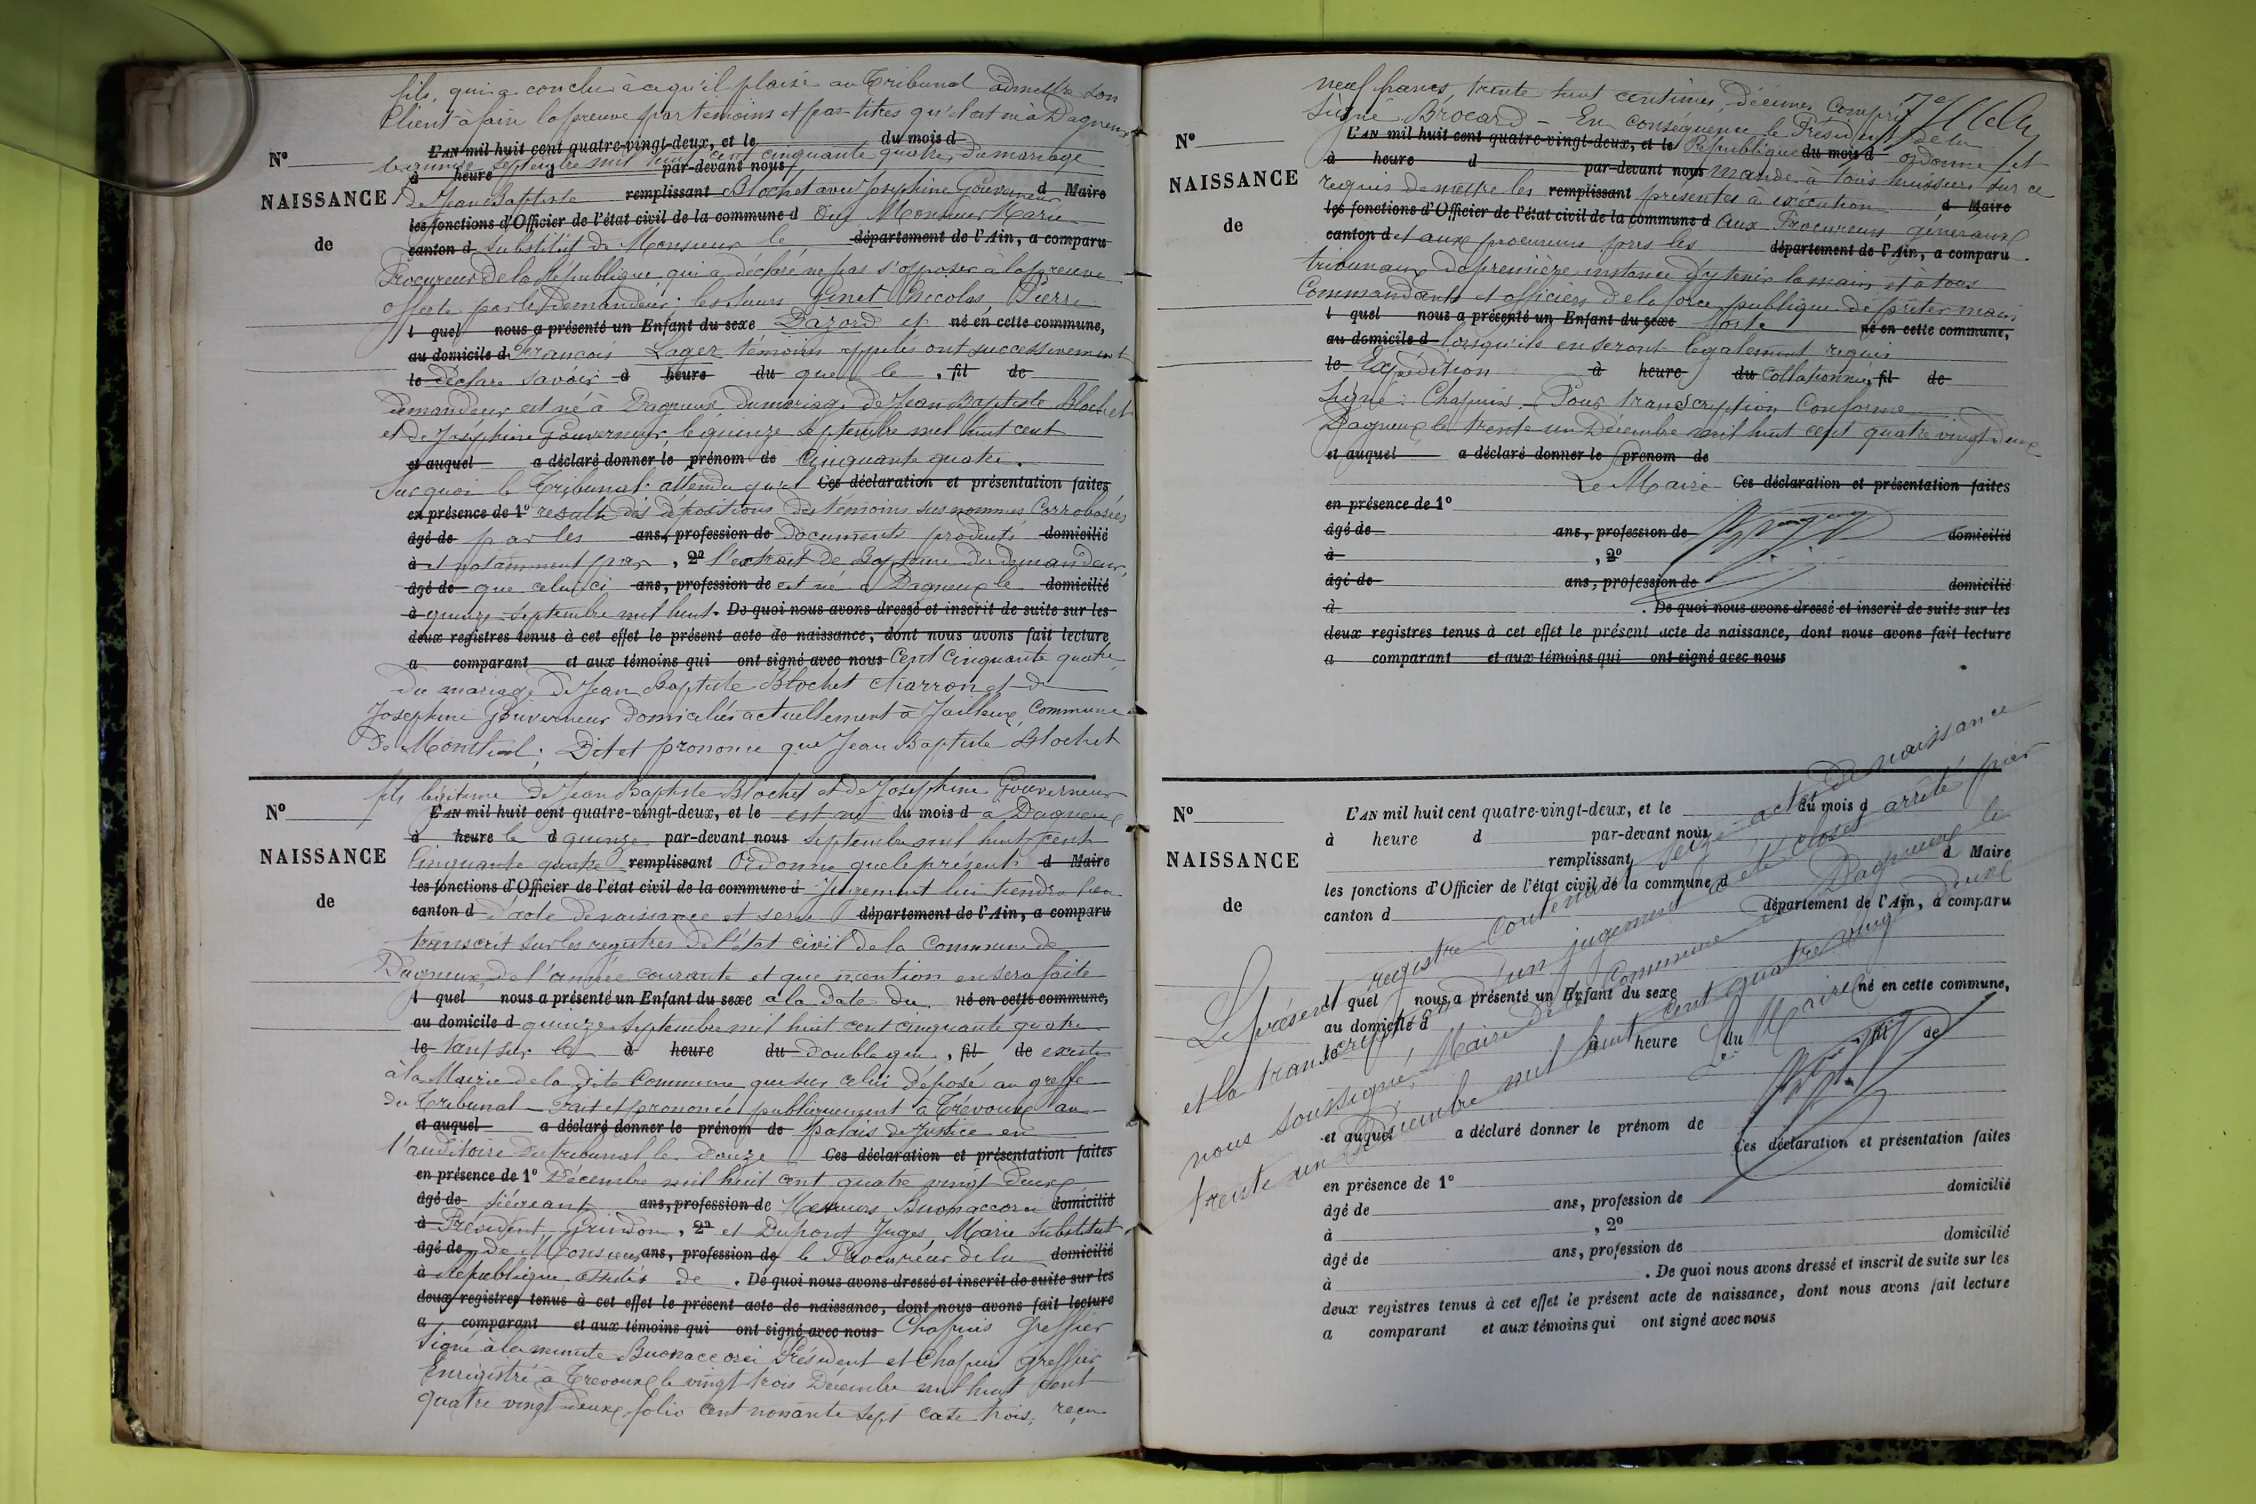 fils, qui a conclu à ce qu'il plaise au Tribunal admettre son
Client à faire la preuve par témoins et par titres qu'il est né à Dagneux
L'AN mil huit cent quatre-vingt-deux, et le du mois d
le quinze septembre mil huit cent cinquante quatre, du mariage
N°
à heure d par-devant nous
NAISSANCE
de Jean Baptiste remplissant Blochet avec Joséphine Gouverneur d Maire
les fonctions d'Officier de l'état civil de la commune d Ouï Monsieur Marie
de
canton d substitut de Monsieur le département de l'Ain, a comparu
Procureur de la République, qui a déclaré ne pas s'opposer à la preuve
offerte par le Demandeur: les sieurs Genet Nicolas, Pierre
t quel nous a présenté un Enfant du sexe Bazord et né en cette commune,
au domicile d François Lager témoins appelés ont successivement
le déclaré savoir à heure du que le , fil de
demandeur est né à Dagneux, du mariage de Jean Baptiste Blochet
et de Joséphine Gouverneur, le quinze septembre mil huit cent
et auquel a déclaré donner le prénom de Cinquante quatre.
Sur quoi le Tribunal: attendu qu'il Ces déclaration et présentation faites
en présence de 1° résulte des dépositions des témoins sus nommés Corroborées
âgé de par les ans, profession de documents produits domicilié
à et notamment par , 2° l'extrait de Baptême du demandeur,
âgé de que celui ci ans, profession de est né à Dagneux le domicilié
à quinze septembre mil huit . De quoi nous avons dressé et inscrit de suite sur les
deux registres tenus à cet effet le présent acte de naissance, dont nous avons fait lecture
a comparant et aux témoins qui ont signé avec nous Cent Cinquante quatre
du mariage de Jean Baptiste Blochet charron et de
Joséphine Gouverneur domiciliés actuellement à Jailleux, Commune
De Montluel; Dit et prononce que Jean Baptiste Blochet
fils légitime de Jean Baptiste Blochet et de Joséphine Gouverneur
N°
L'AN mil huit cent quatre-vingt-deux, et le est né du mois d à Dagneux
à heure le d quinze par-devant nous septembre mil huit cent
NAISSANCE
Cinquante quatre remplissant Ordonne que le présent d Maire
les fonctions d'Officier de l'état civil de la commune d Jugement lui tiendra lieu
de
canton d d'acte de naissance et sera département de l'Ain, a comparu
transcrit sur les registres de l'Etat civil de la Commune de
Dagneux, de l'année courante et que mention en sera faite
t quel nous a présenté un Enfant du sexe à la date du né en cette commune,
au domicile d quinze septembre mil huit cent cinquante quatre
le tant sur le à heure du double qui , fil de existe
à la Mairie de la dite Commune que sur celui déposé au greffe
du Tribunal — Fait et prononcé publiquement à Trévoux au
et auquel a déclaré donner le prénom de palais de Justice en
l'auditoire du tribunal le douze Ces déclaration et présentation faites
en présence de 1° Décembre mil huit cent quatre vingt deux
âgé de siégeant ans, profession de Messieurs Buonaccorsi domicilié
à Président, Grindon , 2° et Dupont Juges, Marie substitut
âgé de de Monsieur ans, profession de le Procureur de la domicilié
à République assistés de . De quoi nous avons dressé et inscrit de suite sur les
deux registres tenus à cet effet le présent acte de naissance, dont nous avons fait lecture
a comparant et aux témoins qui ont signé avec nous Chapuis Greffier
Signé à la minute Buonaccorsi Président et Chapuis Greffier
Enregistré à Trevoux le vingt trois Décembre mil huit cent
quatre vingt deux folio cent nonante sept case trois, reçu
neuf francs, trente huit centimes, décimes Compris
Signé Brocard — En conséquence le Président de la
L'AN mil huit cent quatre-vingt-deux, et le République du mois d ordonne et
N°
à heure d par-devant nous mande à tous huissiers sur ce
NAISSANCE
requis de mettre les remplissant présentes à exécution d Maire
les fonctions d'Officier de l'état civil de la commune d Aux Procureurs généraux
de
canton d et aux procureurs près les département de l'Ain, a comparu
tribunaux de première instance d'y tenir la main et à tous
Commandants et officiers de la force publique de prêter main
t quel nous a présenté un Enfant du sexe forte né en cette commune,
au domicile d lorsqu'ils en seront légalement requis
le Expédition à heure du Collationnée , fil de
Signé: Chapuis — Pour transcription Conforme
Dagneux le trente un Décembre mil huit cent quatre vingt deux
et auquel a déclaré donner le prénom de
Le Maire Ces déclaration et présentation faites
en présence de 1°
âgé de ans, profession de domicilié
à , 2°
âgé de ans, profession de domicilié
à . De quoi nous avons dressé et inscrit de suite sur les
deux registres tenus à cet effet le présent acte de naissance, dont nous avons fait lecture
a comparant et aux témoins qui ont signé avec nous
N°
L'AN mil huit cent quatre-vingt-deux, et le du mois d
à heure d par-devant nous
NAISSANCE
remplissant d Maire
les fonctions d'Officier de l'état civil de la commune d
de
canton d département de l'Ain, a comparu
t quel nous a présenté un Enfant du sexe né en cette commune,
au domicile d
le à heure du fil de
et auquel a déclaré donner le prénom de
Ces déclaration et présentation faites
en présence de 1°
âgé de ans, profession de domicilié
à , 2°
âgé de ans, profession de domicilié
à . De quoi nous avons dressé et inscrit de suite sur les
deux registres tenus à cet effet le présent acte de naissance, dont nous avons fait lecture
a comparant et aux témoins qui ont signé avec nous
Le présent registre Contenant seize actes de naissance
et la transcription d'un jugement a été clos et arrêté par
nous soussigné, Maire de la Commune de Dagneux le
trente un Décembre mil huit cent quatre vingt deux
Le Maire